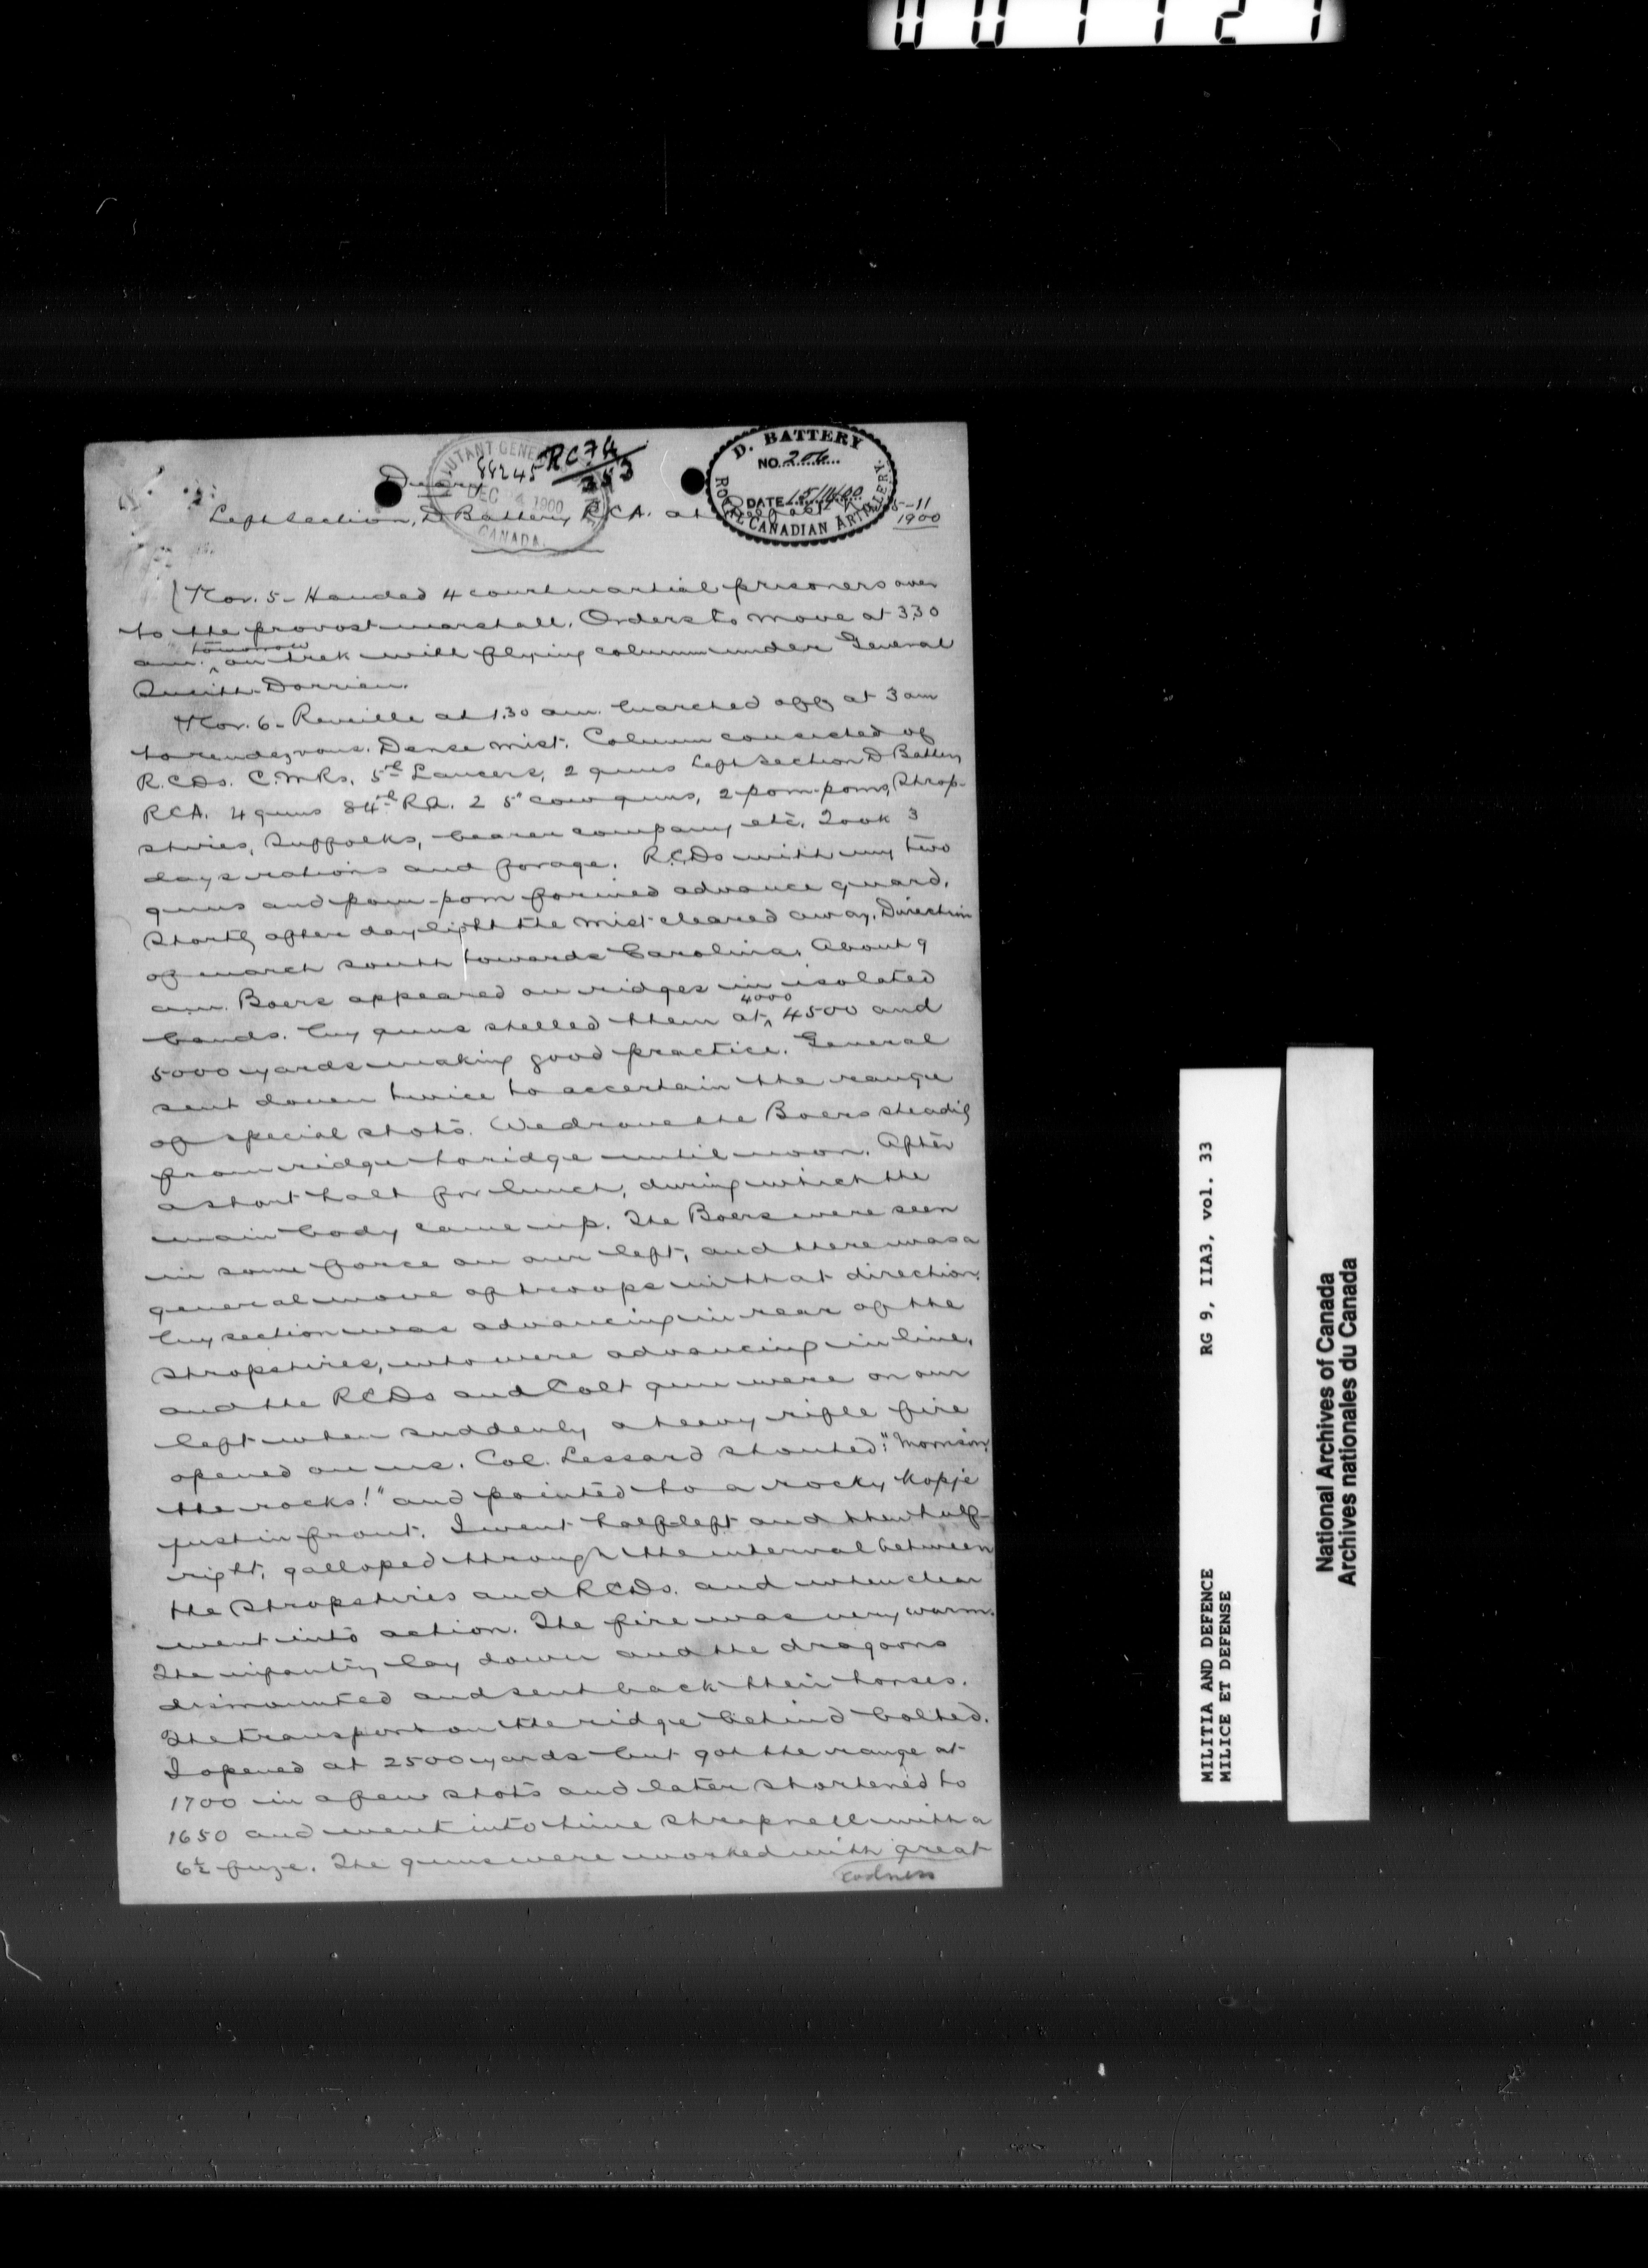 001121
ADJUTANT GENERAL
88245
DEC 4 1900
CANADA
RC74
253
D. BATTERY
NO. 206
DATE 15/11/00
ROYAL CANADIAN ARTILLERY.
Diary
Left Section, D Battery RCA. at 5-11
1900
Nov. 5 - Handed 4 courtmartial prisoners over
to the provost marshall. Orders to move at 3.30
am. tomorrow on trek with flying column under General
Smith-Dorrien.
Nov. 6 - Reveille at 1.30 am. Marched off at 3 am
to rendezvous. Dense mist. Column consisted of
R.CDs. C.MRs. 5th Lancers, 2 guns Left Section D Battery
RCA. 4 guns 84th RA. 2 5" cow guns, 2 pom-poms, Shrop-
shires, Suffolks, bearer company etc. Took 3
days rations and forage. R.C.Ds with my two
guns and pom-pom formed advance guard.
Shortly after daylight the mist cleared away. Direction
of march south towards Carolina. About 9
a.m. Boers appeared on ridges in isolated
bands. My guns shelled them at 4000 4500 and
5000 yards making good practice. General
sent down twice to ascertain the range
of special shots. We drove the Boers steadily
from ridge to ridge until noon. After
a short halt for lunch, during which the
main body came up. The Boers were seen
in some force on our left, and there was a
general move of troops in that direction.
My section was advancing in rear of the
Shropshires, who were advancing in line,
and the RCDs and Colt gun were on our
left when suddenly a heavy rifle fire
opened on us. Col. Lessard shouted: "Morrison,
the rocks!" and pointed to a rocky kopje
just in front. I went half-left and then half-
right, galloped through the interval between
the Shropshires and RCDs. and when clear
went into action. The fire was very warm.
The infantry lay down and the dragoons
dismounted and sent back their horses.
The transport on the ridge behind bolted.
I opened at 2500 yards but got the range at
1700 in a few shots and later shortened to
1650 and went into time shrapnell with a
6½ fuze. The guns were worked with great
coolness
MILITIA AND DEFENCE RG 9, IIA3, vol. 33
MILICE ET DEFENSE
National Archives of Canada
Archives nationales du Canada